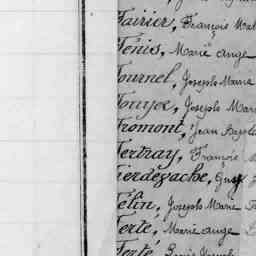 Fairier, François Mat
Fénis, Marie Ange
Fournel, Joseph Marie
Fouyer, Joseph Mari
Fromont, Jean Bapti
Fertray, François
Fierdegache, Gus
Félin, Joseph Marie
Ferte, Marie Ange
Ferté, Louis Joseph